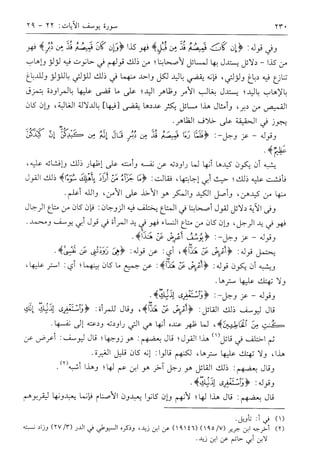 ٢٣٠ سورة يوسف الآيات: ٢٢ - ٢٩
وفي قوله: ﴿إِن كَانَ قَمِيصُهُ قُدَّ مِن قُبُلٍ﴾ فهو كذا ﴿وَإِن كَانَ قَمِيصُهُ قُدَّ مِن دُبُرٍ﴾ فهو
من كذا - دلائل يستدل بها لمسائل لأصحابنا؛ من ذلك قولهم في حانوت فيه لؤلؤ وإهاب
تنازع فيه دباغ ولؤلئي، فإنه يقضي باليد لكل واحد منهما في ذلك للؤلئي باللؤلؤ وللدباغ
بالإهاب باليد؛ يستدل بغالب الأمر وظاهر اليد؛ على ما قضى عليها بالمراودة بتمزق
القميص من دبر، وأمثال هذا مسائل يكثر عددها يقضى [فيها] بالدلالة الغالبة، وإن كان
يجوز في الحقيقة على خلاف الظاهر.
وقوله - عز وجل -: ﴿فَلَمَّا رَءَا قَمِيصَهُ قُدَّ مِن دُبُرٍ قَالَ إِنَّهُ مِن كَيْدِكُنَّ إِنَّ كَيْدَكُنَّ
عَظِيمٌ﴾.
يشبه أن يكون كيدها أنها لما راودته عن نفسه وأمته على إظهار ذلك وإفشائه عليه،
فأفشت عليه ذلك؛ حيث أبى إجابتها، فقالت: ﴿مَا جَزَآءُ مَنْ أَرَادَ بِأَهْلِكَ سُوٓءًا﴾ ذلك القول
منها من كيدهن، وأصل الكيد والمكر هو الأخذ على الأمن، والله أعلم.
وفي الآية دلائل لقول أصحابنا في المتاع يختلف فيه الزوجان: فإن كان من متاع الرجال
فهو في يد الرجل، وإن كان من متاع النساء فهو في يد المرأة في قول أبي يوسف ومحمد.
وقوله - عز وجل -: ﴿يُوسُفُ أَعْرِضْ عَنْ هَٰذَا﴾.
يحتمل قوله: ﴿أَعْرِضْ عَنْ هَٰذَا﴾، أي: عن قوله: ﴿هِيَ رَٰوَدَتْنِي عَن نَّفْسِي﴾.
ويشبه أن يكون قوله: ﴿أَعْرِضْ عَنْ هَٰذَا﴾: عن جميع ما كان بينهما؛ أي: استر عليها،
ولا تهتك عليها سترها.
وقوله - عز وجل -: ﴿وَٱسْتَغْفِرِي لِذَنۢبِكِ﴾.
قال ليوسف ذلك القائل: ﴿أَعْرِضْ عَنْ هَٰذَا﴾، وقال للمرأة: ﴿وَٱسْتَغْفِرِي لِذَنۢبِكِ إِنَّكِ
كُنتِ مِنَ ٱلْخَاطِـِٔينَ﴾، لما ظهر عنده أنها هي التي راودته ودعته إلى نفسها.
ثم اختلف في قائل(١) هذا القول؛ قال بعضهم: هو زوجها؛ قال ليوسف: أعرض عن
هذا، ولا تهتك عليها سترها، لكنهم قالوا: إنه كان قليل الغيرة.
وقال بعضهم: ذلك القائل هو رجل آخر هو ابن عم لها؛ وهذا أشبه(٢).
وقوله: ﴿وَٱسْتَغْفِرِي لِذَنۢبِكِ﴾.
قال بعضهم: قال هذا لها؛ لأنهم وإن كانوا يعبدون الأصنام فإنما يعبدونها ليقربوهم
(١) في أ: تأويل.
(٢) أخرجه ابن جرير (٧/ ١٩٥) (١٩١٤٦) عن ابن زيد، وذكره السيوطي في الدر (٤/ ٢٧) وزاد نسبته
لابن أبي حاتم عن ابن زيد.